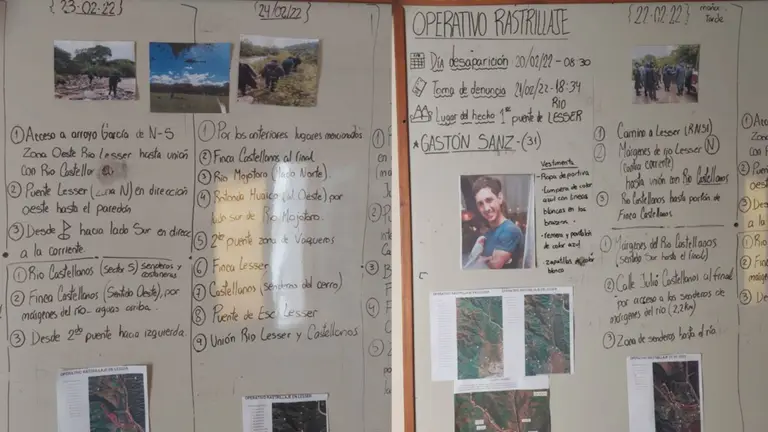 {23-02-22}
① Acceso a arroyo García de N-S
Zona Oeste Rio Lesser hasta unión
con Rio Castellanos
② Puente Lesser (Zona N) en dirección
oeste hasta el paredón
③ Desde hacia lado Sur en direcc
a la corriente.
① Rio Castellanos (sector S) senderos y
② Finca Castellanos (Sentido Oeste), por
márgenes del río aguas arriba.
③ Desde 2do puente hacia izquierda.
OPERATIVO RASTRILLAJE EN LESSER
{24/02/22}
① Por los anteriores lugares mencionados
② Finca Castellanos al final
③ Rio Mojotoro (lado Norte).
④ Rotonda Huaico (al Oeste) por
lado sur de Rio Mojotoro.
⑤ 2do puente zona de Vaqueros
⑥ Finca Lesser
⑦ Castellanos (senderos del cerro)
⑧ Puente de Esc. Lesser
⑨ Unión Rio Lesser y Castellanos
OPERATIVO RASTRILLAJE EN LESSER
OPERATIVO RASTRILLAJE
Día desaparición 20/02/22 - 08:30
Toma de denuncia 21/02/22 - 18:34
Lugar del hecho 1er puente de RIO LESSER
* GASTÓN SANZ - (31)
Vestimenta
- Ropa deportiva
- Campera de color
azul con lineas
blancas en los
brazos.
- remera y pantalón
de color azul
- zapatillas de color
blanco
{22-02-22}
mañana
Tarde
① Camino a Lesser (RN51)
② Márgenes de río Lesser (N)
(contra corriente)
hasta unión con Rio Castellanos
③ Rio Castellanos hasta portón de
Finca Castellanos.
① Márgenes del Rio Castellanos
(sentido Sur hasta el final)
② Calle Julio Castellanos al final
por acceso a los senderos de
márgenes del río (2,2km)
③ Zona de senderos hasta el río.